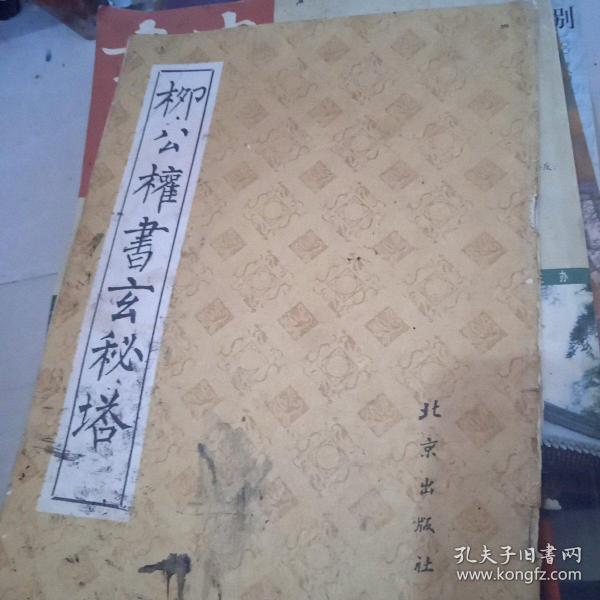 柳公權書玄秘塔
北京出版社
别
办
孔夫子旧书网
www.kongfz.com